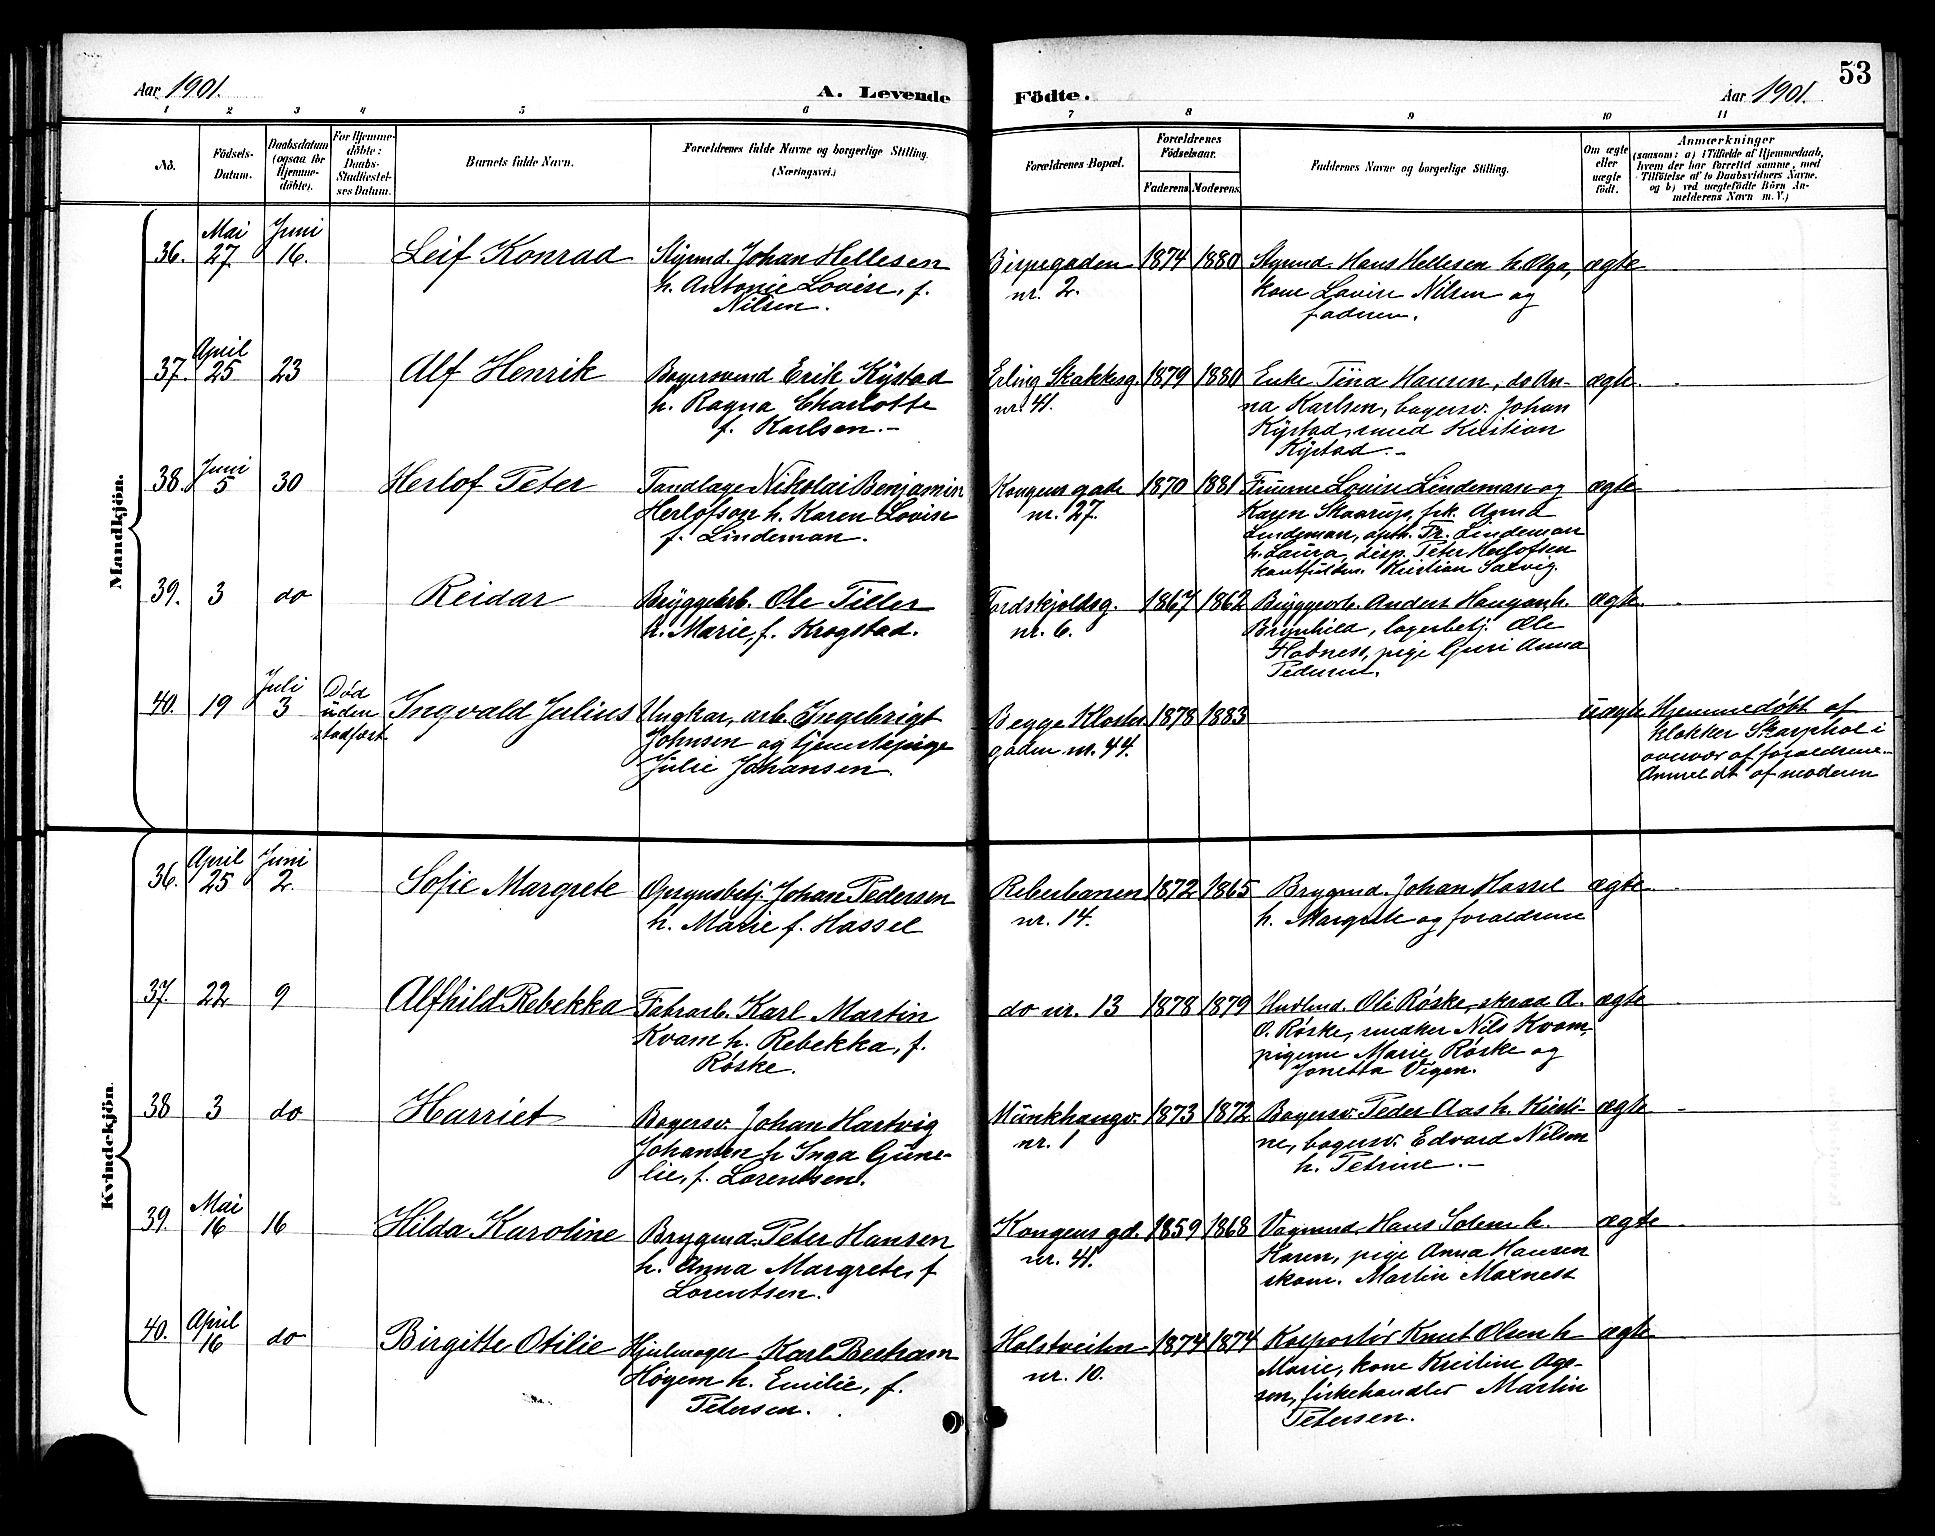 53
Aar 1901.
A. Levende
Födte.
Aar 1901.
1 2 3 4 5 6 7 8 9 10 11
No.
Födsels-
Datum.
Daabsdatum
(ogsaa for
Hjemme-
döbte).
For Hjemme-
döbte:
Daabs-
Stadfæstel-
ses Datum.
Barnets fulde Navn.
Forældrenes fulde Navne og borgerlige Stilling.
(Næringsvei.)
Forældrenes Bopæl.
Forældrenes
Födselsaar.
Faderens Moderens
Faddernes Navne og borgerlige Stilling.
Om ægte
eller
uægte
födt.
Anmærkninger
(saasom: a) i Tilfælde af Hjemmedaab,
hvem der har forrettet samme, med
Tilföielse af to Daabsvidners Navne.
og b) ved uægtefödte Börn An-
melderens Navn m. V.)
Mandkjön.
36. Mai 27. Juni 16. Leif Konrad
Styrmd. Johan Hellesen
h. Antonie Lovise, f.
Nilsen.
Bispegaden
nr. 2.
1874 1880
Styrmd. Hans Hellesen h. Olga,
kone Lovise Nilsen og
faderen.
ægte
37. April 25 23 Alf Henrik
Bagersvend Erik Kystad
h. Ragna Charlotte
f. Karlsen.
Erling Skakkesg.
nr. 41.
1879 1880
Enke Tina Hansen, do An-
na Karlsen, bagersv. Johan
Kystad, smed Kristian
Kystad.
ægte
38. Juni 5 30 Herlof Peter
Tandlæge Nikolai Benjamin
Herlofson h. Karen Lovise
f. Lindeman.
Kongens gade
nr. 27.
1870 1881
Fruerne Lovise Lindeman og
Karen Skaarup, frk. Anna
Lindeman, apth. Th. Lindeman
h. Laura, disp. Peter Herlofsen
Kristian Saxvig.
ægte
39. 3 do Reidar
Bryggearb. Ole Tiller
h. Marie, f. Krogstad.
Tordskjoldsg.
nr. 6.
1867 1862
Bryggearb. Anders Haugan h.
Brynhild, lagerbetj. Ole
pige Guri Anna
Pedersen.
ægte
40. 19 Juli 3 Død
uden
stadfæst.
Ingvald Julius
Ungkar, arb. Ingebrigt
Johnsen og tjenestepige
Julie Johansen.
Begge Kloster
gaden nr. 44.
1878 1883
uægte
Hjemmedøbt af
klokker Skarphol i
overvær af forældrene.
Anmeldt af moderen
Kvindekjön.
36. April 25 Juni 2. Sofie Margrete
Opsynsbetj. Johan Pedersen
h. Marie f. Hassel
Reberbanen
nr. 14.
1872 1865
Brygmd. Johan Hassel
h. Margrete og forældrene
ægte
37. 22 9 Alfhild Rebekka
Fabrarb. Karl Martin
Kvam h. Rebekka, f.
Røske.
do nr. 13
1878 1879
Handlmd. Ole Røske, skræd. A.
O. Røske, snedker Nils Kvam,
pigerne Marie Røske og
Jonetta Vigen.
ægte
38 3 do Harriet
Bagersv. Johan Hartvig
Johansen h Inga Gune-
lie, f. Lorentsen.
Munkhaugv.
nr. 1
1873 1872
Bagersv. Peder Aas h. Kristi-
ne, bagersv. Edvard Nilsen
h. Petrine.
ægte
39. Mai 16 16 Hilda Karoline
Brygmd. Peter Hansen
h. Anna Margrete, f
Lorentsen.
Kongens gd.
nr. 41.
1859 1868
Vognmd. Hans Solem h.
Karen, pige Anna Hansen
skom. Martin Moxness
ægte
40. April 16 do Birgitte Otilie
Hjulmager Karl Bernham
Høyem h. Emilie, f.
Petersen.
Holstveiten
nr. 10.
1874 1874
Kolportør Knut Olsen h
Marie, kone Kristine Age-
sen, fiskehandler Martin
Petersen.
ægte